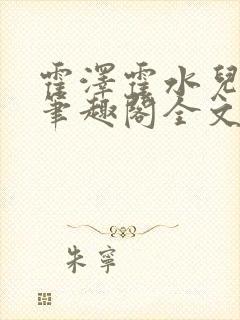 霍澤霍水兒
筆趣閣全文
朱寧